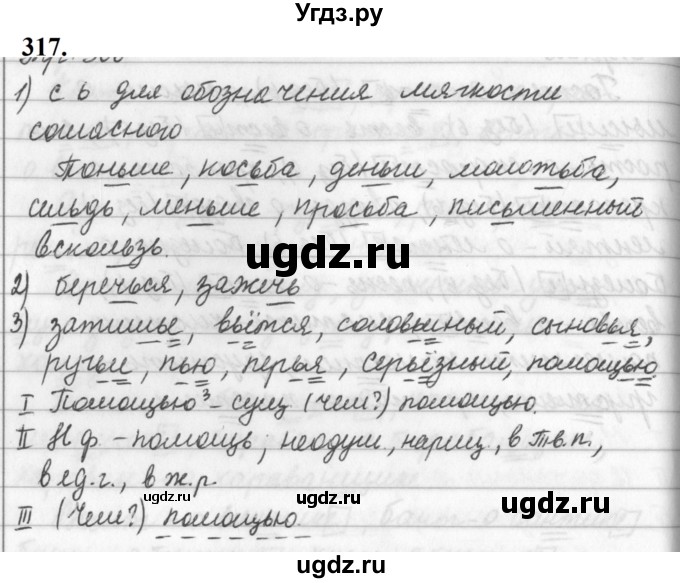 Угдз.ру
317.
1) с ь для обозначения мягкости
согласного
Тоньше, косьба, деньги, молотьба,
сельдь, меньше, просьба, письменный
вскользь.
2) беречься, зажечь
3) затишье, вьётся, соловьиный, сыновья,
ручьи, пью, перья, серьёзный, помощью.
I Помощью³ – сущ (чем?) помощью.
II Н.ф. – помощь, неодуш, нариц, в Тв.п.,
в ед.ч., в ж.р.
III (Чем?) помощью
ugdz.ru
ugdz.ru
ugdz.ru
ugdz.ru
ugdz.ru
ugdz.ru
ugdz.ru
ugdz.ru
ugdz.ru
ugdz.ru